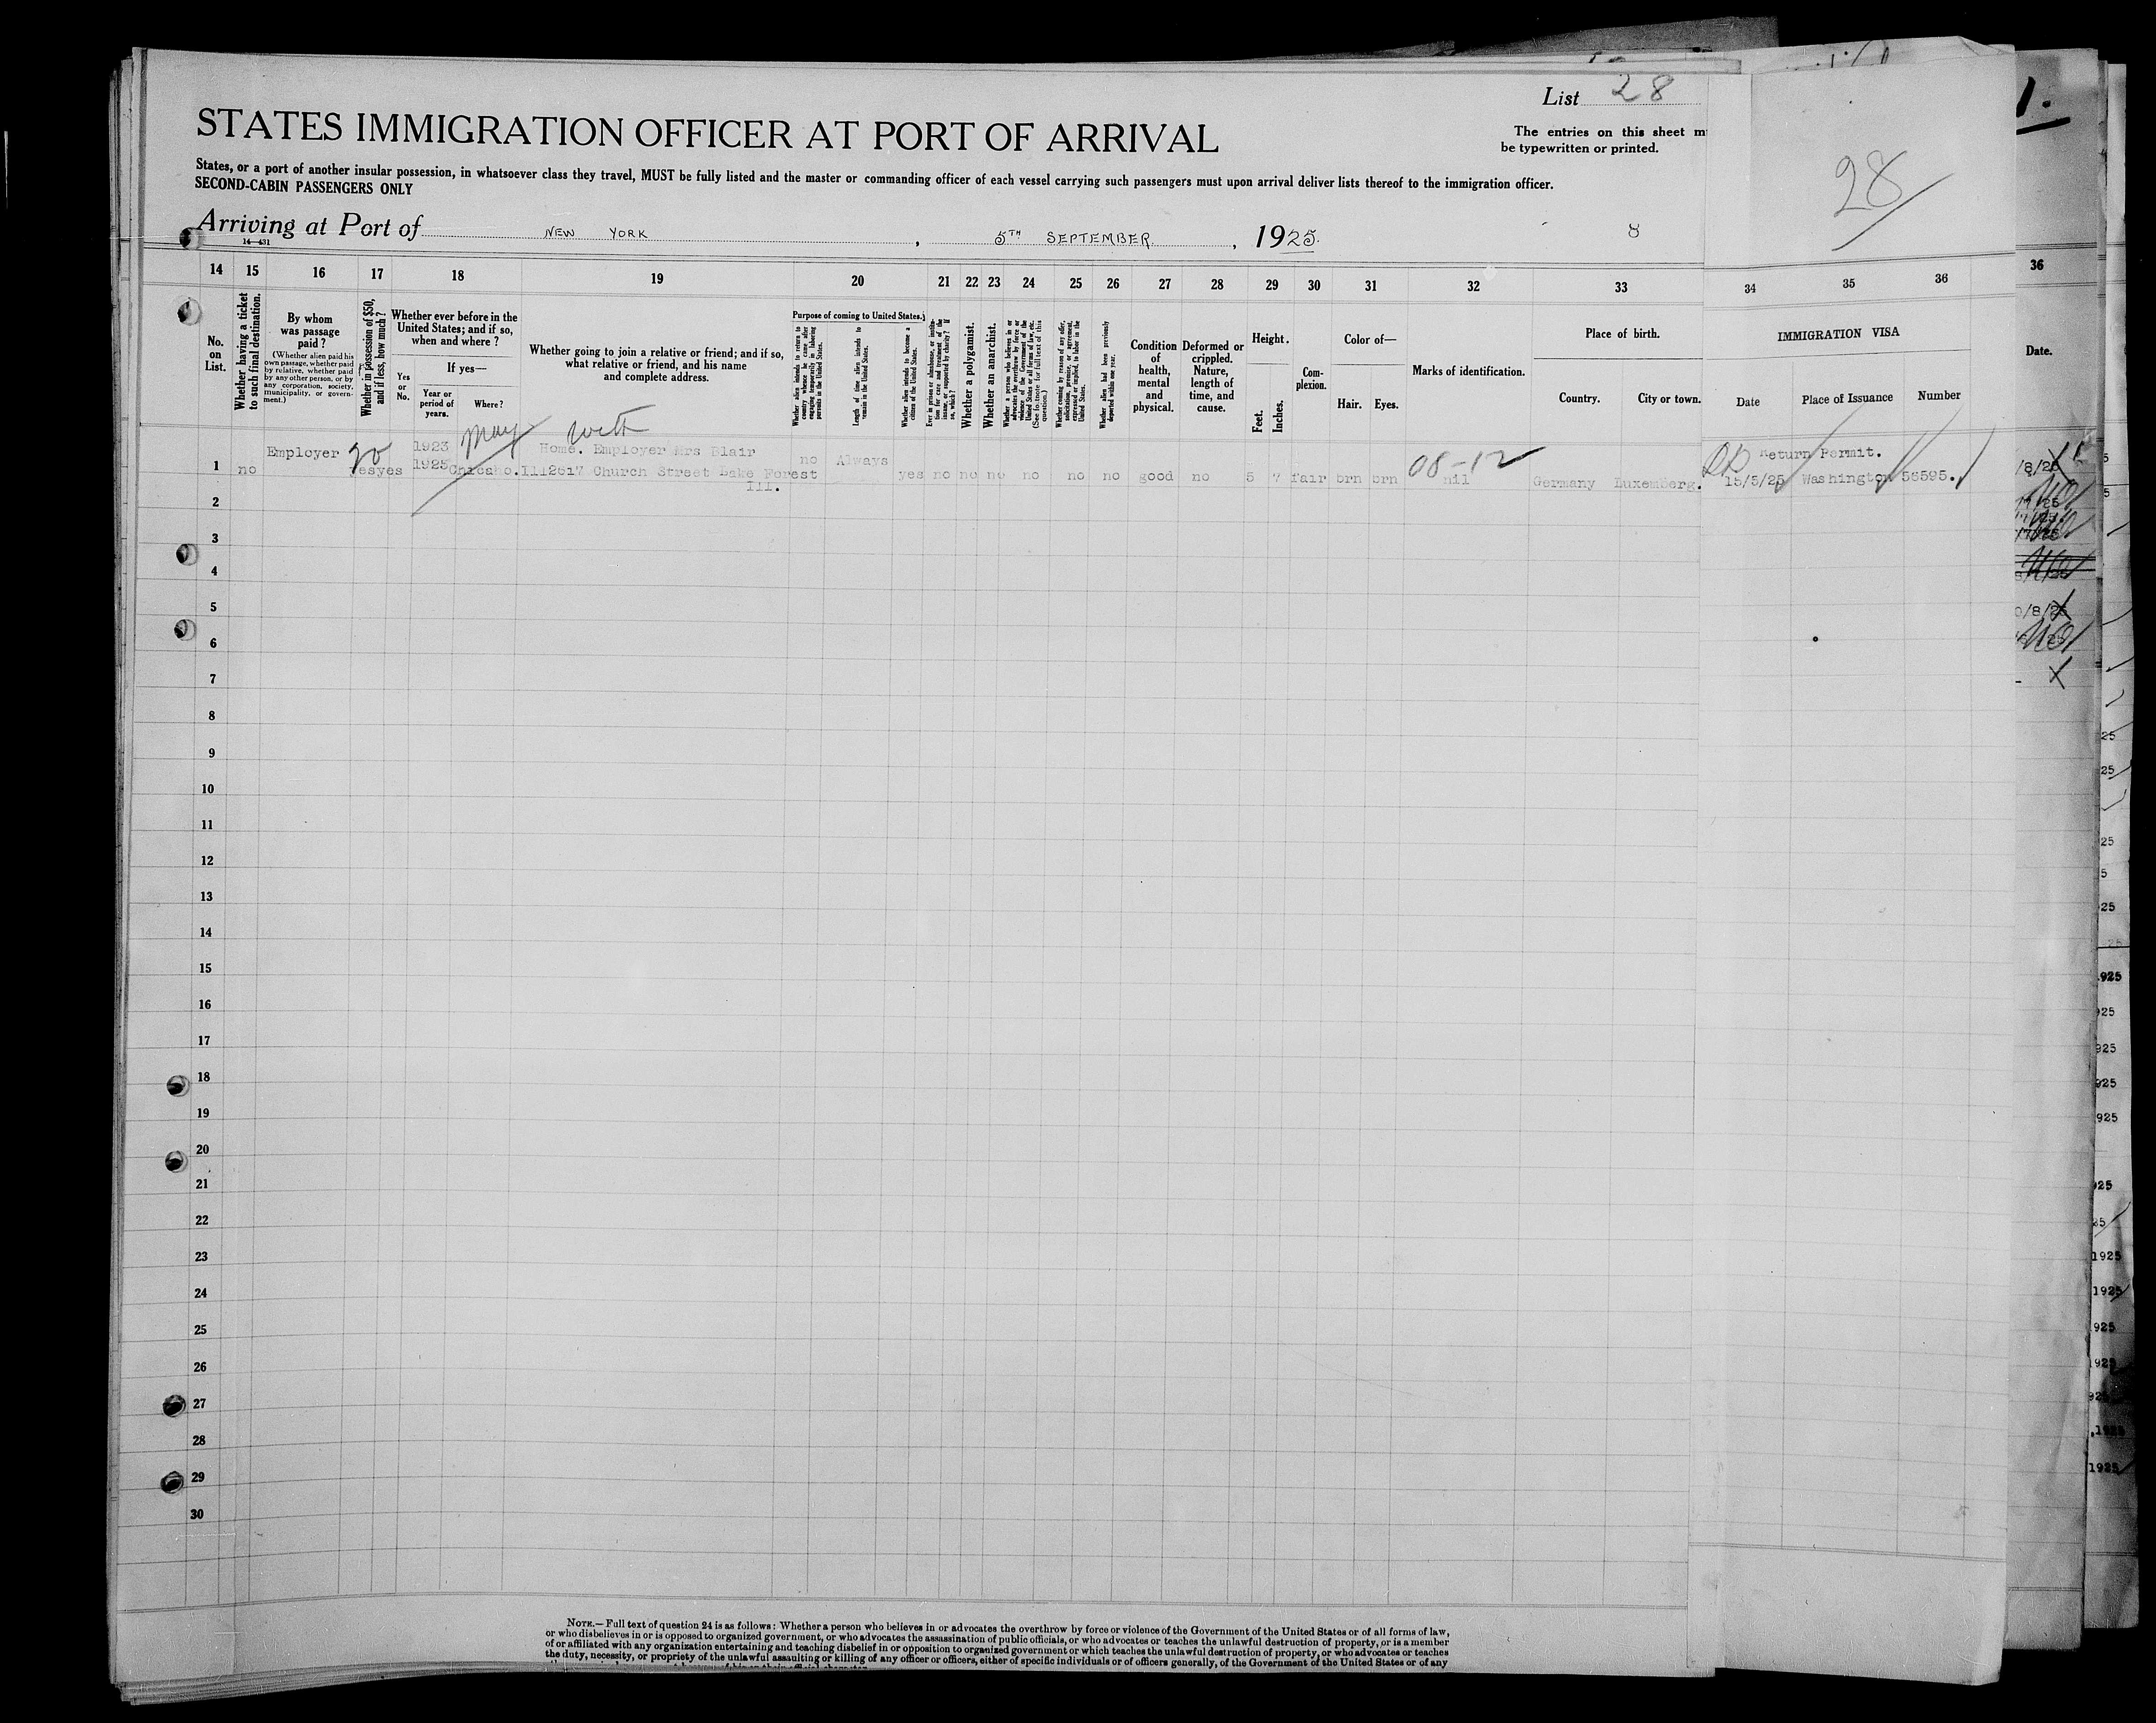 List 28
STATES IMMIGRATION OFFICER AT PORT OF ARRIVAL
The entries on this sheet m
be typewritten or printed.
States, or a port of another insular possession, in whatsoever class they travel, MUST be fully listed and the master or commanding officer of each vessel carrying such passengers must upon arrival deliver lists thereof to the immigration officer.
SECOND-CABIN PASSENGERS ONLY
28
1.
Arriving at Port of NEW YORK, 5TH SEPTEMBER, 1925.
8
14—431
14 15 16 17 18 19 20 21 22 23 24 25 26 27 28 29 30 31 32 33 34 35 36
36
No. on List.
Whether having a ticket to such final destination.
By whom was passage paid?
(Whether alien paid his own passage, whether paid by relative, whether paid by any other person, or by any corporation, society, municipality, or government.)
Whether in possession of $50, and if less, how much?
Whether ever before in the United States; and if so, when and where?
Yes or No.
If yes—
Year or period of years.
Where?
Whether going to join a relative or friend; and if so, what relative or friend, and his name and complete address.
Purpose of coming to United States.
Whether alien intends to return to country whence he came after engaging temporarily in laboring pursuits in the United States.
Length of time alien intends to remain in the United States.
Whether alien intends to become a citizen of the United States.
Ever in prison or almshouse, or institution for care and treatment of the insane, or supported by charity? If so, which?
Whether a polygamist.
Whether an anarchist.
Whether a person who believes in or advocates the overthrow by force or violence of the Government of the United States or all forms of law, etc. (See footnote for full text of this question.)
Whether coming by reason of any offer, solicitation, promise, or agreement, expressed or implied, to labor in the United States.
Whether alien had been previously deported within one year.
Condition of health, mental and physical.
Deformed or crippled. Nature, length of time, and cause.
Height.
Feet. Inches.
Complexion.
Color of—
Hair. Eyes.
Marks of identification.
Place of birth.
Country. City or town.
IMMIGRATION VISA
Date Place of Issuance Number
Date.
May with
Employer 90 1923 Home. Employer Mrs Blair no Always 08-12 Return Permit.
1 no yes yes 1925 Chicaho.Ill 2617 Church Street Lake Forest yes no no no no no no good no 5 7 fair brn brn nil Germany Luxemberg. 15/5/25 Washington 56595.
Ill.
2
3
4
5
6
7
8
9
10
11
12
13
14
15
16
17
18
19
20
21
22
23
24
25
26
27
28
29
30
NOTE.—Full text of question 24 is as follows: Whether a person who believes in or advocates the overthrow by force or violence of the Government of the United States or of all forms of law,
or who disbelieves in or is opposed to organized government, or who advocates the assassination of public officials, or who advocates or teaches the unlawful destruction of property, or is a member
of or affiliated with any organization entertaining and teaching disbelief in or opposition to organized government or which teaches the unlawful destruction of property, or who advocates or teaches
the duty, necessity, or propriety of the unlawful assaulting or killing of any officer or officers, either of specific individuals or of officers generally, of the Government of the United States or of any